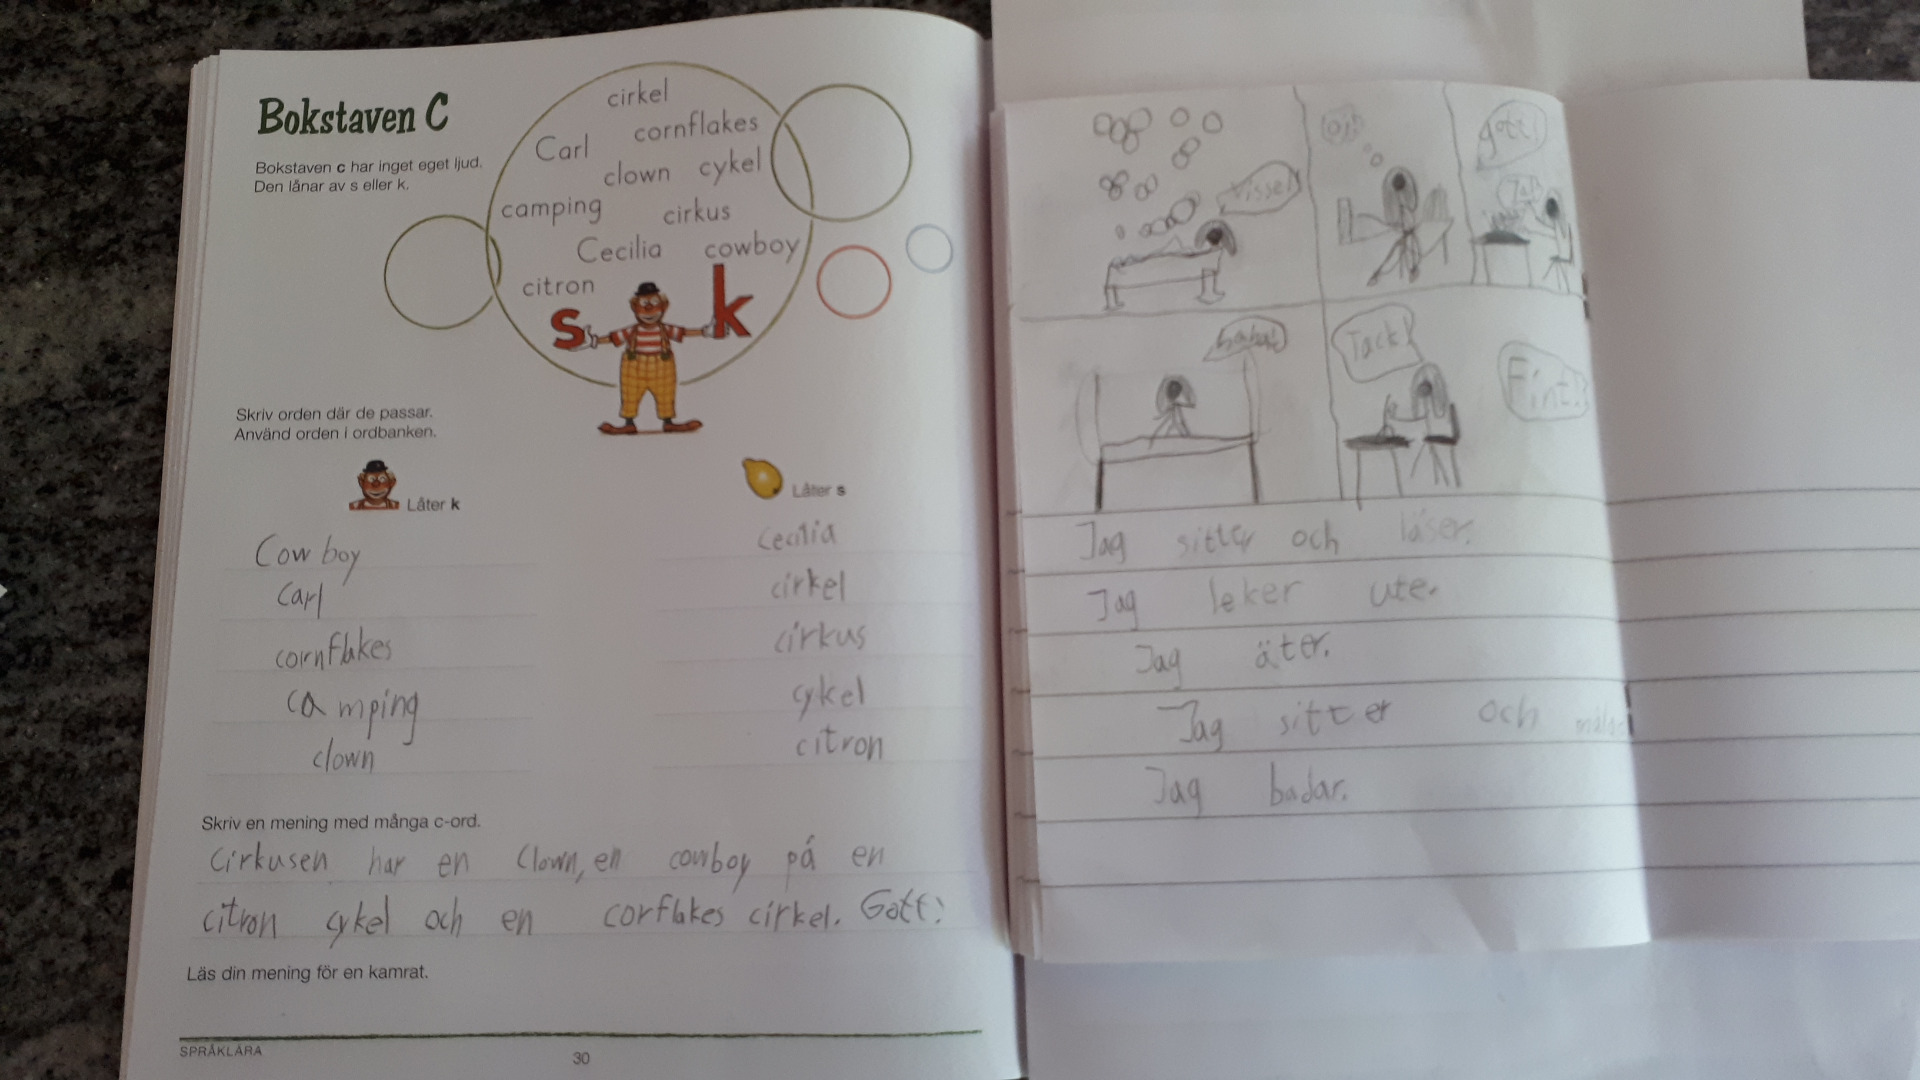 Bokstaven C
Bokstaven c har inget eget ljud.
Den lånar av s eller k.
cirkel
Carl cornflakes
clown cykel
camping cirkus
Cecilia cowboy
citron
s k
Skriv orden där de passar.
Använd orden i ordbanken.
Låter k
Cowboy
Carl
cornflakes
camping
clown
Låter s
Cecilia
cirkel
cirkus
cykel
citron
Skriv en mening med många c-ord.
Cirkusen har en Clown, en cowboy på en
citron cykel och en corflakes cirkel. Gott!
Läs din mening för en kamrat.
SPRÅKLÄRA
30
gott!
Tack!
Fint!
Jag sitter och läser.
Jag leker ute.
Jag äter.
Jag sitter och målar
Jag badar.